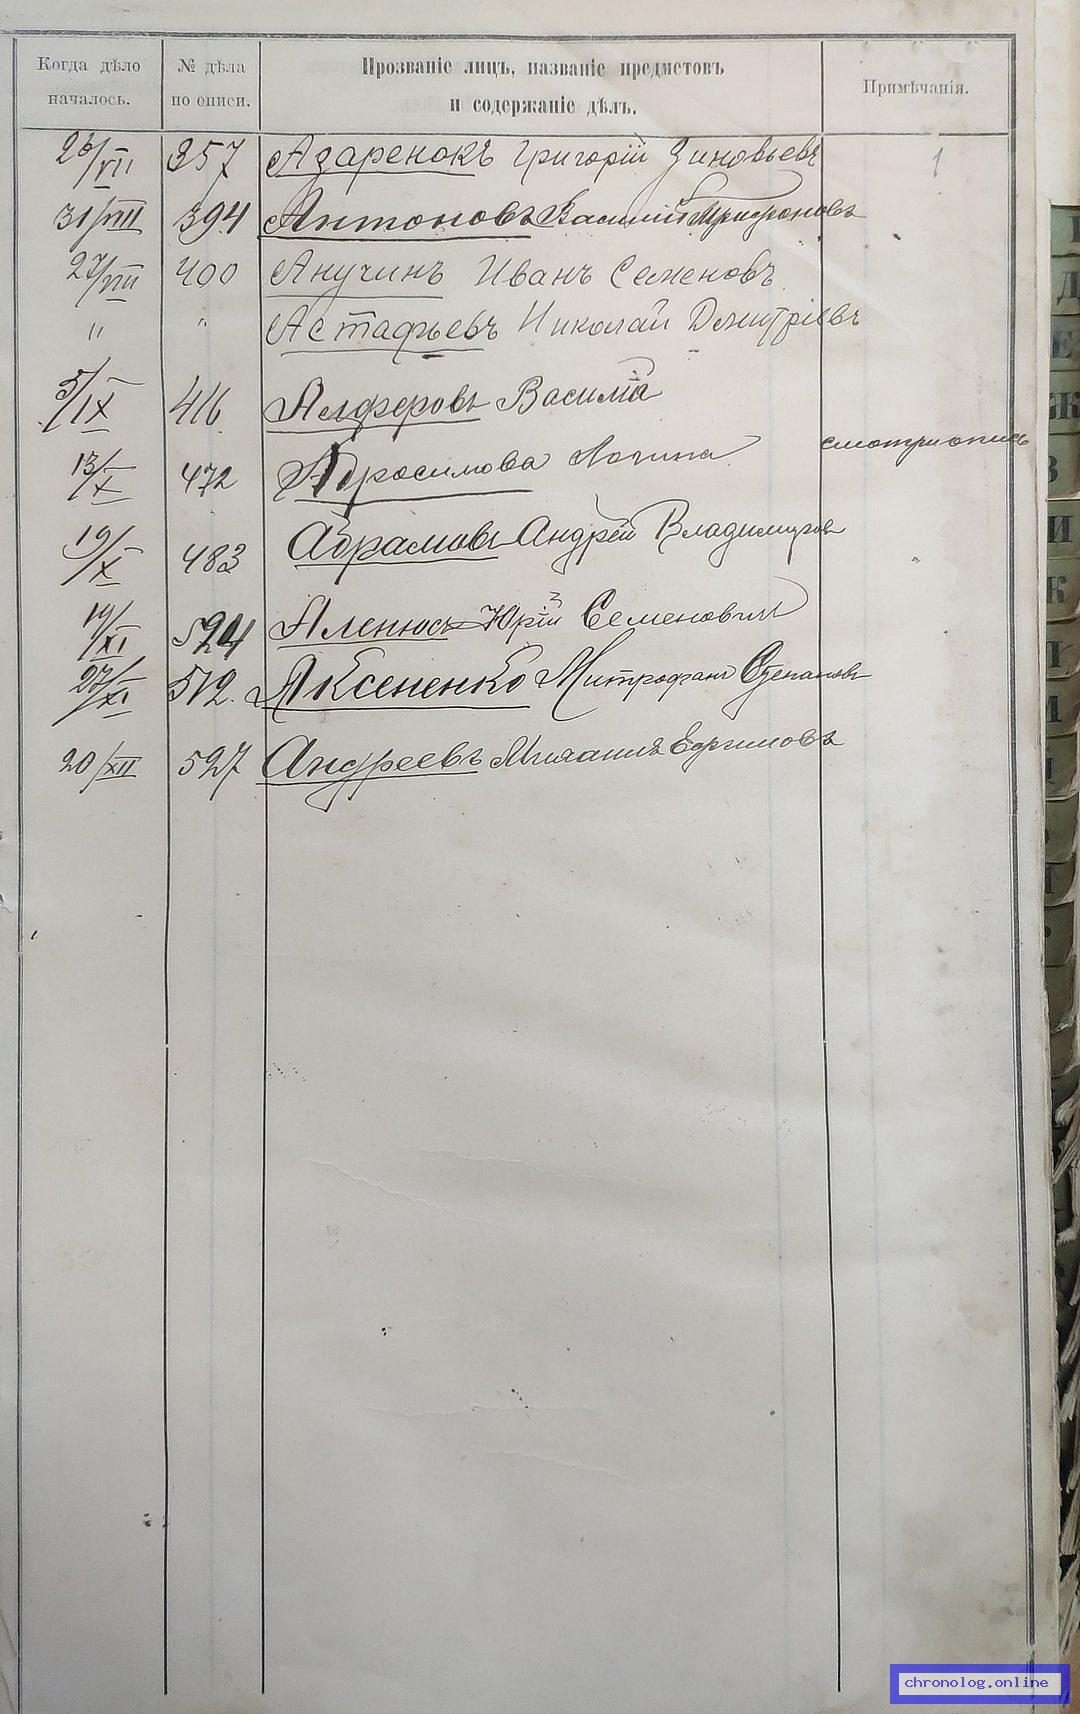 Когда дѣло началось.
№ дѣла по описи.
Прозваніе лицъ, названіе предметовъ
и содержаніе дѣлъ.
Примѣчанія.
26/VII 357 Азаренокъ Григорій Зиновьевъ 1
31/VIII 394 Антоновъ Василій
27/VIII 400 Анучинъ Иванъ Семеновъ
" " Астафьевъ Николай Дмитріевъ
5/IX 416 Алферовъ Василій
13/X 472 Абросимова смотри опись
19/X 483 Абрамовъ Андрей Владимировъ
19/XI Аленюсъ Юрій Семеновичъ
27/XI 512. Аксененко Митрофанъ Степановъ
20/XII 527 Андреевъ Ефимовъ
chronolog.online